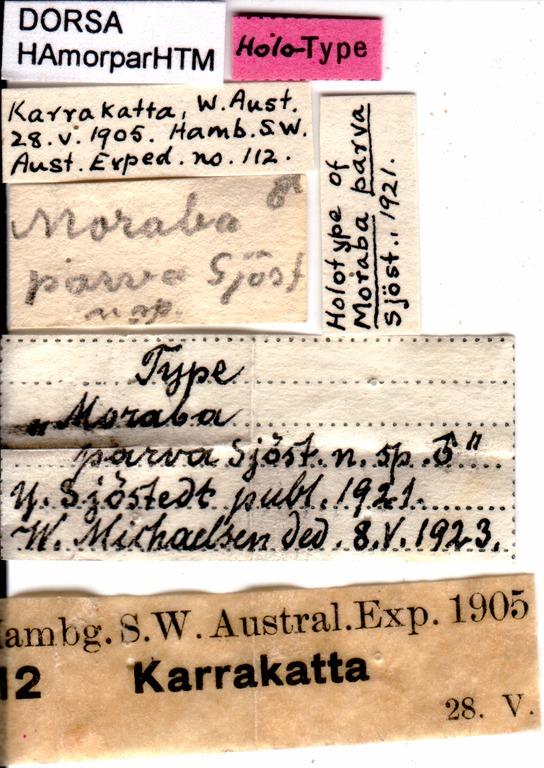 DORSA
HAmorparHTM
Holo-Type
Karrakatta, W. Aust.
28.v.1905. Hamb. S.W.
Aust. Exped. no. 112.
Holotype of
Moraba parva
Sjöst., 1921.
Moraba
parva Sjöst
n sp.
Type
„Moraba
parva Sjöst. n. sp. ♂"
Y. Sjöstedt publ. 1921.
W. Michaelsen ded. 8.V.1923.
ambg. S.W. Austral. Exp. 1905
12 Karrakatta
28. V.